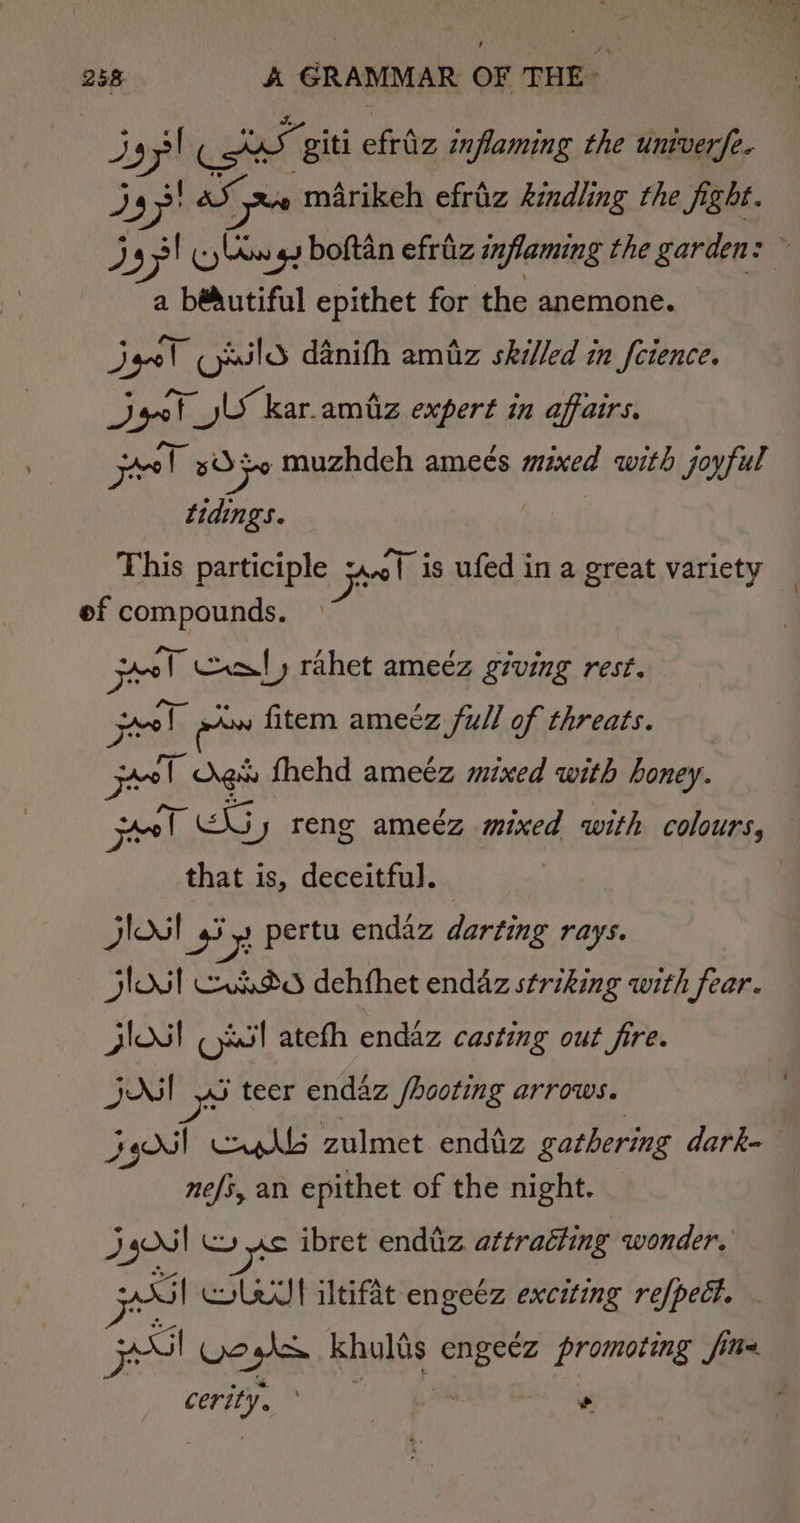 258 A GRAMMAR OF THE
گیتی افروز giti efrûz inflaming the univerſe.
معرکه افروز mârikeh efrûz kindling the fight.
بوستان افروز boſtân efrûz inflaming the garden:
a beautiful epithet for the anemone.
دانش آموز dâniſh amûz skilled in ſcience.
کار آموز kar amûz expert in affairs.
مژده آمیز muzhdeh ameés mixed with joyful
tidings.
This participle آمیز is uſed in a great variety
of compounds.
راحت آمیز râhet ameéz giving rest.
ستم آمیز ſitem ameéz full of threats.
شهد آمیز ſhehd ameéz mixed with honey.
رنگ آمیز reng ameéz mixed with colours,
that is, deceitful.
پرتو انداز pertu endáz darting rays.
دهشت انداز dehſhet endáz striking with fear.
اتش انداز ateſh endáz casting out fire.
تیر انداز teer endáz ſhooting arrows.
ظلمت اندوز zulmet endûz gathering dark-
neſs, an epithet of the night.
عبرت اندوز ibret endûz attracting wonder.
التفات انکیز iltifât engeéz exciting reſpect.
خلوص انکیز khulûs engeéz promoting ſin-
cerity.